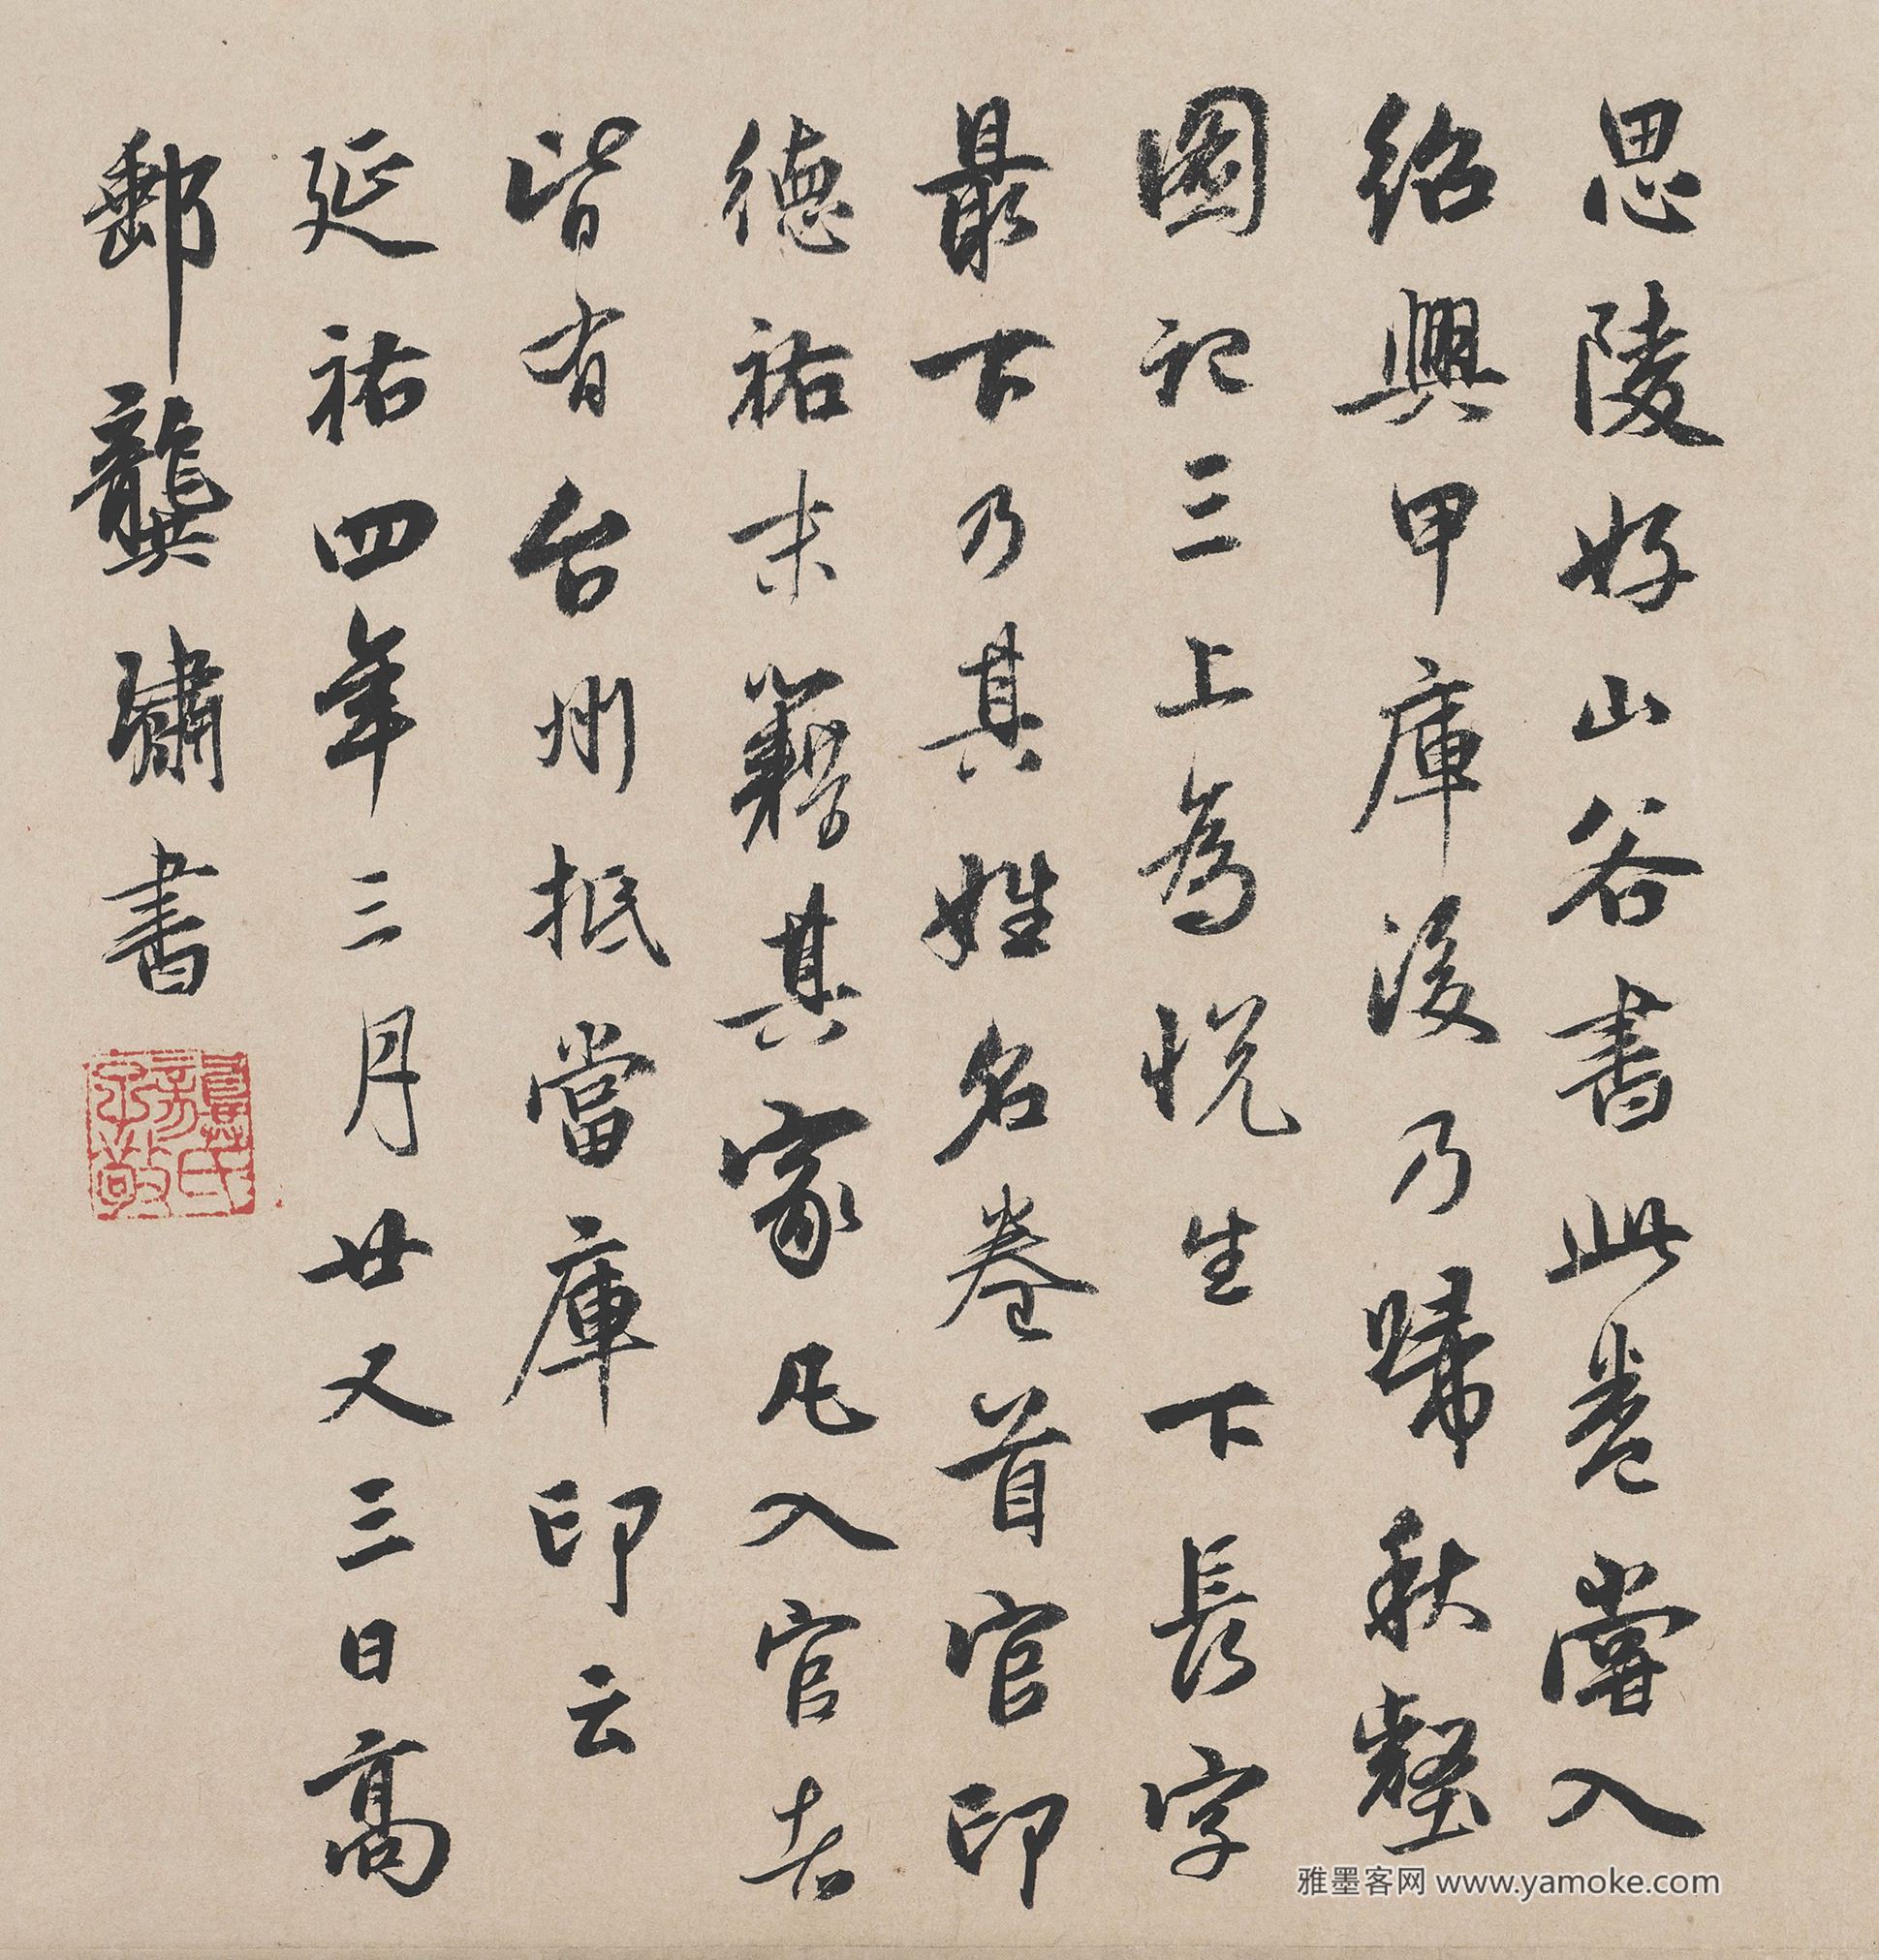 思陵好山谷書此卷嘗入
紹興甲庫後乃歸秋壑
圖記三上為悅生下長字
最下乃其姓名卷首官印
德祐末籍其家凡入官者
皆有台州抵當庫印云
延祐四年三月廿又三日高
郵龔璛書
雅墨客网 www.yamoke.com